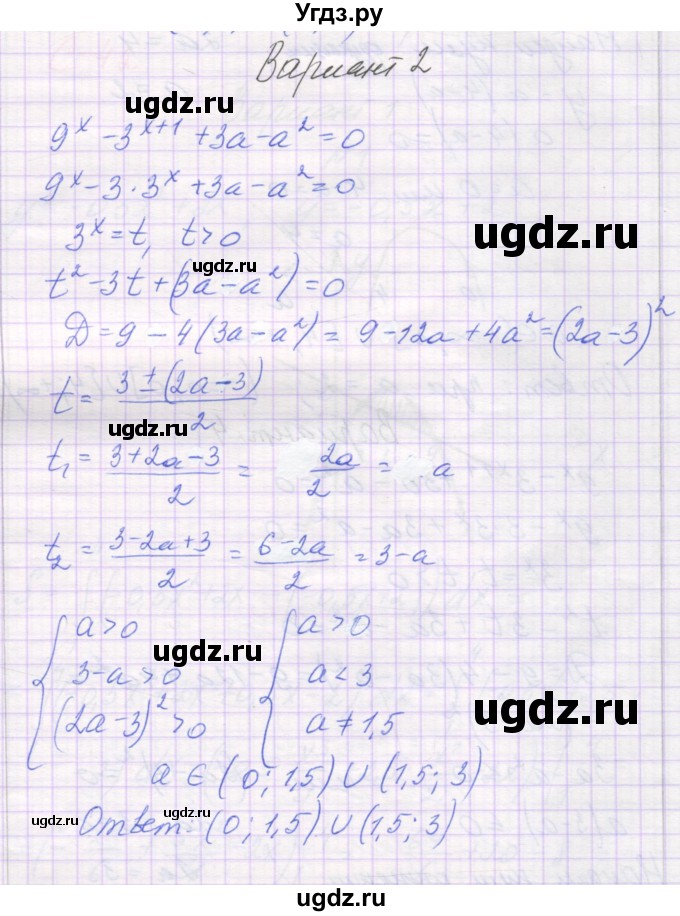 Угдз.ру
Вариант 2
ugdz.ru
9^x - 3^{x+1} + 3a - a^2 = 0
ugdz.ru
9^x - 3 · 3^x + 3a - a^2 = 0
ugdz.ru
3^x = t, t > 0
ugdz.ru
t^2 - 3t + (3a - a^2) = 0
ugdz.ru
D = 9 - 4(3a - a^2) = 9 - 12a + 4a^2 = (2a - 3)^2
t = (3 ± (2a - 3))/2
ugdz.ru
ugdz.ru
t_1 = (3 + 2a - 3)/2 = 2a/2 = a
ugdz.ru
t_2 = (3 - 2a + 3)/2 = (6 - 2a)/2 = 3 - a
{ a > 0 { a > 0
ugdz.ru
3 - a > 0 a < 3
ugdz.ru
(2a - 3)^2 > 0 a ≠ 1,5
a ∈ (0; 1,5) ∪ (1,5; 3)
ugdz.ru
ugdz.ru
Ответ: (0; 1,5) ∪ (1,5; 3)
ugdz.ru
ugdz.ru